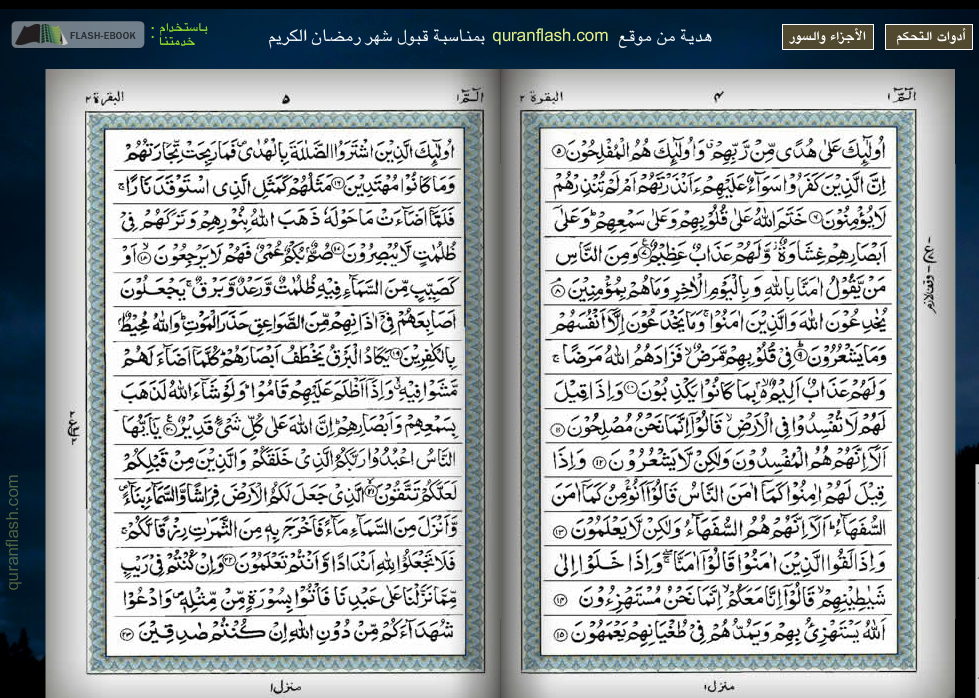 أدوات التحكم
الأجزاء والسور
هدية من موقع quranflash.com بمناسبة قبول شهر رمضان الكريم
باستخدام :
خدمتنا
FLASH-EBOOK
الٓمّٓ ١
۴
البقرة ٢
اُولٰٓئِكَ عَلٰى هُدًى مِّنْ رَّبِّهِمْ ۗ وَاُولٰٓئِكَ هُمُ الْمُفْلِحُوْنَ ﴿۵﴾
اِنَّ الَّذِيْنَ كَفَرُوْا سَوَآءٌ عَلَيْهِمْ ءَاَنْذَرْتَهُمْ اَمْ لَمْ تُنْذِرْهُمْ
لَا يُؤْمِنُوْنَ ﴿۶﴾ خَتَمَ اللّٰهُ عَلٰى قُلُوْبِهِمْ وَعَلٰى سَمْعِهِمْ ؕ وَعَلٰٓى
اَبْصَارِهِمْ غِشَاوَةٌ ؗ وَّلَهُمْ عَذَابٌ عَظِيْمٌ ﴿۷﴾ وَمِنَ النَّاسِ
مَنْ يَّقُوْلُ اٰمَنَّا بِاللّٰهِ وَبِالْيَوْمِ الْاٰخِرِ وَمَا هُمْ بِمُؤْمِنِيْنَ ﴿۸﴾
يُخٰدِعُوْنَ اللّٰهَ وَالَّذِيْنَ اٰمَنُوْا ۚ وَمَا يَخْدَعُوْنَ اِلَّآ اَنْفُسَهُمْ
وَمَا يَشْعُرُوْنَ ﴿۹﴾ فِيْ قُلُوْبِهِمْ مَّرَضٌ ۙ فَزَادَهُمُ اللّٰهُ مَرَضًا ۚ
وَلَهُمْ عَذَابٌ اَلِيْمٌ ۢ ۙ بِمَا كَانُوْا يَكْذِبُوْنَ ﴿۱۰﴾ وَاِذَا قِيْلَ
لَهُمْ لَا تُفْسِدُوْا فِى الْاَرْضِ ۙ قَالُوْٓا اِنَّمَا نَحْنُ مُصْلِحُوْنَ ﴿۱۱﴾
اَلَآ اِنَّهُمْ هُمُ الْمُفْسِدُوْنَ وَلٰكِنْ لَّا يَشْعُرُوْنَ ﴿۱۲﴾ وَاِذَا
قِيْلَ لَهُمْ اٰمِنُوْا كَمَآ اٰمَنَ النَّاسُ قَالُوْٓا اَنُؤْمِنُ كَمَآ اٰمَنَ
السُّفَهَآءُ ؕ اَلَآ اِنَّهُمْ هُمُ السُّفَهَآءُ وَلٰكِنْ لَّا يَعْلَمُوْنَ ﴿۱۳﴾
وَاِذَا لَقُوا الَّذِيْنَ اٰمَنُوْا قَالُوْٓا اٰمَنَّا ۖۚ وَاِذَا خَلَوْا اِلٰى
شَيٰطِيْنِهِمْ ۙ قَالُوْٓا اِنَّا مَعَكُمْ ۙ اِنَّمَا نَحْنُ مُسْتَهْزِءُوْنَ ﴿۱۴﴾
اَللّٰهُ يَسْتَهْزِئُ بِهِمْ وَيَمُدُّهُمْ فِيْ طُغْيَانِهِمْ يَعْمَهُوْنَ ﴿۱۵﴾
منزل ١
الٓمّٓ ١
۵
البقرة ٢
اُولٰٓئِكَ الَّذِيْنَ اشْتَرَوُا الضَّلٰلَةَ بِالْهُدٰى ۪ فَمَا رَبِحَتْ تِّجَارَتُهُمْ
وَمَا كَانُوْا مُهْتَدِيْنَ ﴿۱۶﴾ مَثَلُهُمْ كَمَثَلِ الَّذِى اسْتَوْقَدَ نَارًا ۚ
فَلَمَّآ اَضَآءَتْ مَا حَوْلَهٗ ذَهَبَ اللّٰهُ بِنُوْرِهِمْ وَتَرَكَهُمْ فِيْ
ظُلُمٰتٍ لَّا يُبْصِرُوْنَ ﴿۱۷﴾ صُمٌّۢ بُكْمٌ عُمْيٌ فَهُمْ لَا يَرْجِعُوْنَ ﴿۱۸﴾ اَوْ
كَصَيِّبٍ مِّنَ السَّمَآءِ فِيْهِ ظُلُمٰتٌ وَّرَعْدٌ وَّبَرْقٌ ۚ يَجْعَلُوْنَ
اَصَابِعَهُمْ فِيْٓ اٰذَانِهِمْ مِّنَ الصَّوَاعِقِ حَذَرَ الْمَوْتِ ؕ وَاللّٰهُ مُحِيْطٌۢ
بِالْكٰفِرِيْنَ ﴿۱۹﴾ يَكَادُ الْبَرْقُ يَخْطَفُ اَبْصَارَهُمْ ؕ كُلَّمَآ اَضَآءَ لَهُمْ
مَّشَوْا فِيْهِ ۙ وَاِذَآ اَظْلَمَ عَلَيْهِمْ قَامُوْا ؕ وَلَوْ شَآءَ اللّٰهُ لَذَهَبَ
بِسَمْعِهِمْ وَاَبْصَارِهِمْ ؕ اِنَّ اللّٰهَ عَلٰى كُلِّ شَيْءٍ قَدِيْرٌ ﴿۲۰﴾ يٰٓاَيُّهَا
النَّاسُ اعْبُدُوْا رَبَّكُمُ الَّذِيْ خَلَقَكُمْ وَالَّذِيْنَ مِنْ قَبْلِكُمْ
لَعَلَّكُمْ تَتَّقُوْنَ ﴿۲۱﴾ الَّذِيْ جَعَلَ لَكُمُ الْاَرْضَ فِرَاشًا وَّالسَّمَآءَ بِنَآءً ۪
وَّاَنْزَلَ مِنَ السَّمَآءِ مَآءً فَاَخْرَجَ بِهٖ مِنَ الثَّمَرٰتِ رِزْقًا لَّكُمْ ۚ
فَلَا تَجْعَلُوْا لِلّٰهِ اَنْدَادًا وَّاَنْتُمْ تَعْلَمُوْنَ ﴿۲۲﴾ وَاِنْ كُنْتُمْ فِيْ رَيْبٍ
مِّمَّا نَزَّلْنَا عَلٰى عَبْدِنَا فَاْتُوْا بِسُوْرَةٍ مِّنْ مِّثْلِهٖ ۪ وَادْعُوْا
شُهَدَآءَكُمْ مِّنْ دُوْنِ اللّٰهِ اِنْ كُنْتُمْ صٰدِقِيْنَ ﴿۲۳﴾
منزل ١
quranflash.com